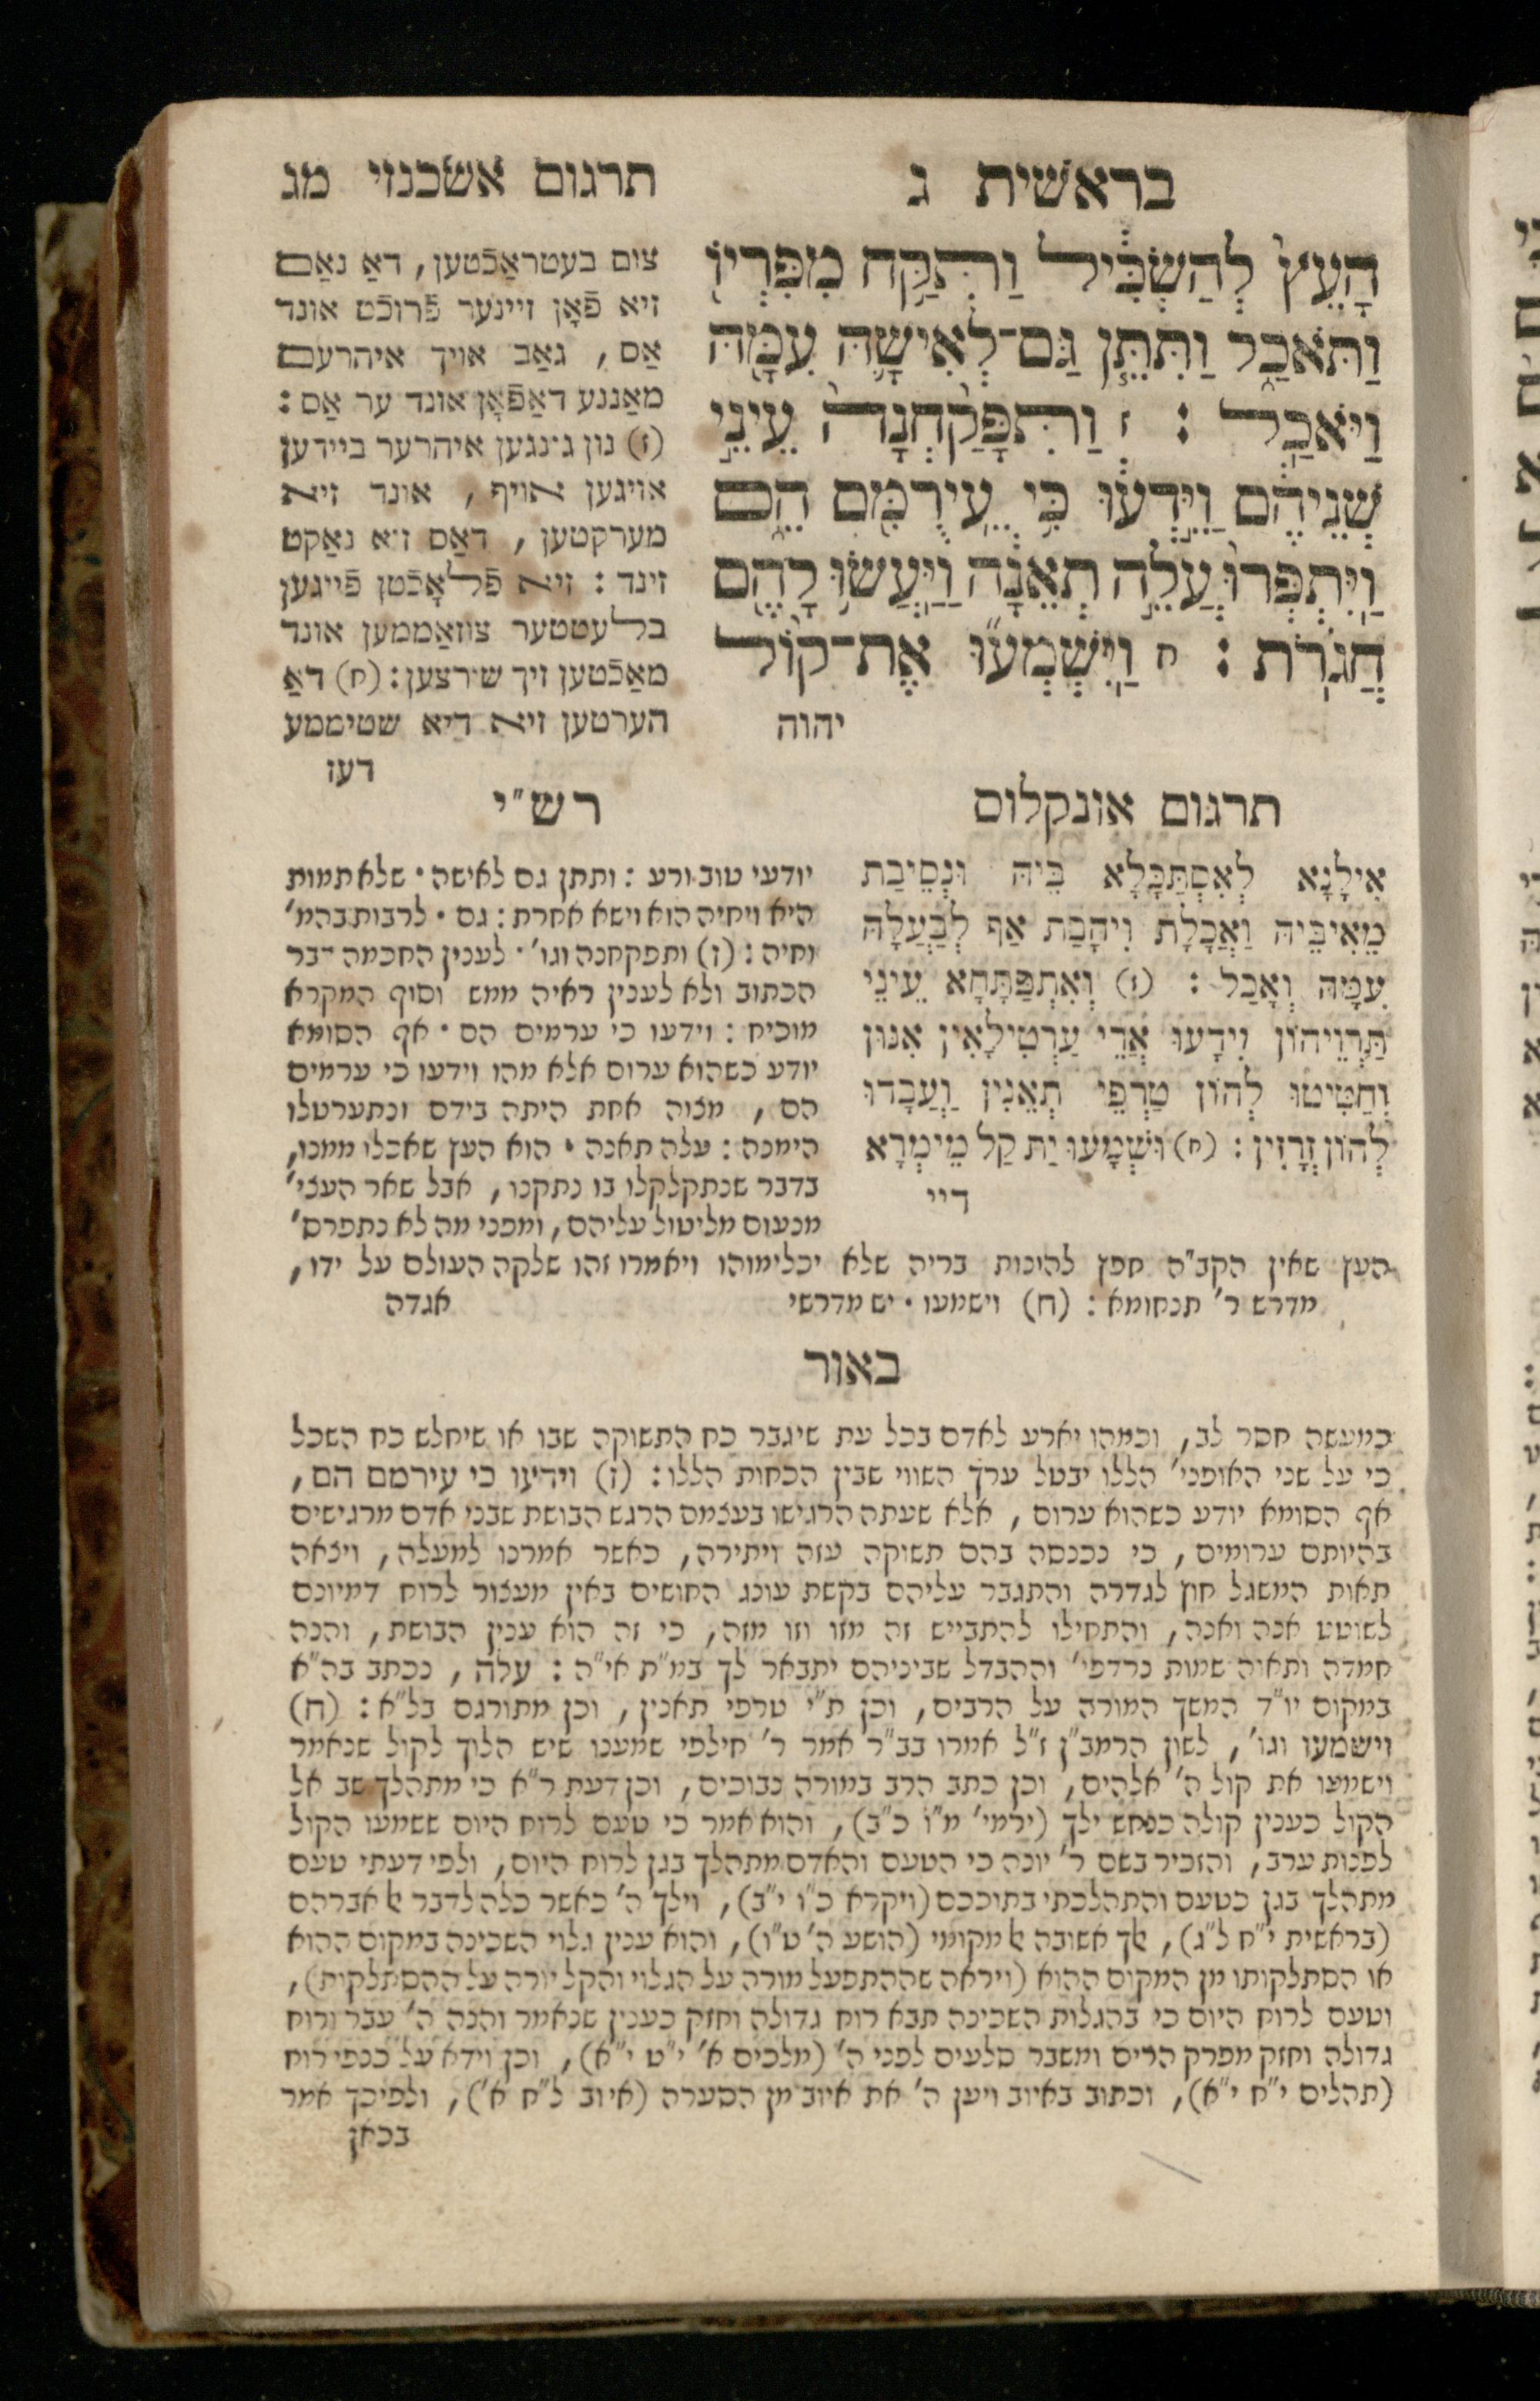 בראשית ג
תרגום אשכנזי מג
הָעֵץ֙ לְהַשְׂכִּ֔יל וַתִּקַּ֥ח מִפִּרְי֖וֹ
וַתֹּאכַ֑ל וַתִּתֵּ֧ן גַּם־לְאִישָׁ֛הּ עִמָּ֖הּ
וַיֹּאכַֽל : ז וַתִּפָּקַ֙חְנָה֙ עֵינֵ֣י
שְׁנֵיהֶ֔ם וַיֵּ֣דְע֔וּ כִּ֥י עֵֽירֻמִּ֖ם הֵ֑ם
וַֽיִּתְפְּרוּ֙ עֲלֵ֣ה תְאֵנָ֔ה וַיַּעֲשׂ֥וּ לָהֶ֖ם
חֲגֹרֹֽת : ח וַֽיִּשְׁמְע֞וּ אֶת־ק֨וֹל
יהוה
צום בעטראַכֿטען, דאַ נאַם
זיא פֿאָן זיינער פֿרוכֿט אונד
אַס, גאַב אויך איהרעם
מאַננע דאַפֿאָן אונד ער אַס :
(ז) נון גינגען איהרער ביידען
אויגען אויף, אונד זיא
מערקטען, דאַס זיא נאַקט
זינד : זיא פֿלאָכֿטן פֿייגען
בלעטטער צוזאַממען אונד
מאַכֿטען זיך שירצען : (ח) דאַ
הערטען זיא דיא שטיממע
דעז
תרגום אונקלוס
אִילָנָא לְאִסְתַּכָּלָא בֵּיהּ וּנְסֵיבַת
מֵאִיבֵּיהּ וַאֲכָלַת וִיהָבַת אַף לְבַעֲלָהּ
עִמָּהּ וַאֲכָל : (ז) וְאִתְפַּתָּחָא עֵינֵי
תַּרְוֵיהוֹן וִידָעוּ אֲרֵי עַרְטִילָאִין אִנּוּן
וְחַטִּיטוּ לְהוֹן טַרְפֵי תְאֵנִין וַעֲבָדוּ
לְהוֹן זְרָזִין : (ח) וּשְׁמָעוּ יַת קַל מֵימְרָא
דיי
רש״י
יודעי טוב ורע : ותתן גם לאישה • שלא תמות
היא ויחיה הוא וישא אחרת : גם • לרבות בהמ׳
וחיה : (ז) ותפקחנה וגו׳ • לענין החכמה דבר
הכתוב ולא לענין ראיה ממש וסוף המקרא
מוכיח : וידעו כי ערמים הם • אף הסומא
יודע כשהוא ערום אלא מהו וידעו כי ערמים
הם, מצוה אחת היתה בידם ונתערטלו
הימנה : עלה תאנה • הוא העץ שאכלו ממנו,
בדבר שנתקלקלו בו נתקנו, אבל שאר העצי׳
מנעום מליטול עליהם, ומפני מה לא נתפרס׳
העץ שאין הקב״ה חפץ להונות בריה שלא יכלימוהו ויאמרו זהו שלקה העולם על ידו,
מדרש ר׳ תנחומא : (ח) וישמעו • יש מדרשי
אגדה
באור
במעשה חסר לב, וכמהו יארע לאדם בכל עת שיגבר כח התשוקה שבו או שיחלש כח השכל
כי על שני האופני׳ הללו יבטל ערך השווי שבין הכחות הללו : (ז) וידעו כי עירמם הם,
אף הסומא יודע כשהוא ערום, אלא שעתה הרגישו בעצמם הרגש הבושת שבני אדם מרגישים
בהיותם ערומים, כי נכנסה בהם תשוקה עזה ויתירה, כאשר אמרנו למעלה, ויצאה
תאות המשגל חוץ לגדרה והתגבר עליהם בקשת עונג החושים באין מעצור לרוח דמיונם
לשוטט אנה ואנה, והתחילו להתבייש זה מזו וזו מזה, כי זה הוא ענין הבושת, והנה
חמדה ותאוה שמות נרדפי׳ וההבדל שביניהם יתבאר לך במ״ת אי״ה : עלה, נכתב בה״א
במקום יו״ד המשך המורה על הרבים, וכן ת״י טרפי תאנין, וכן מתורגם בל״א : (ח)
וישמעו וגו׳, לשון הרמב״ן ז״ל אמרו בב״ר אמר ר׳ חילפי שמענו שיש הלוך לקול שנאמר
וישמעו את קול ה׳ אלהים, וכן כתב הרב במורה נבוכים, וכן דעת ר״א כי מתהלך שב אל
הקול כענין קולה כנחש ילך (ירמי׳ מ״ו כ״ב), והוא אמר כי טעם לרוח היום ששמעו הקול
לפנות ערב, והזכיר בשם ר׳ יונה כי הטעם והאדם מתהלך בגן לרוח היום, ולפי דעתי טעם
מתהלך בגן כטעם והתהלכתי בתוככם (ויקרא כ״ו י״ב), וילך ה׳ כאשר כלה לדבר אל אברהם
(בראשית י״ח ל״ג), אלך אשובה אל מקומי (הושע ה׳ ט״ו), והוא ענין גלוי השכינה במקום ההוא
או הסתלקותו מן המקום ההוא (ויראה שההתפעל מורה על הגלוי והקל יורה על ההסתלקות),
וטעם לרוח היום כי בהגלות השכינה תבא רוח גדולה וחזק כענין שנאמר והנה ה׳ עבר ורוח
גדולה וחזק מפרק הרים ומשבר סלעים לפני ה׳ (מלכים א׳ י״ט י״א), וכן וידא על כנפי רוח
(תהלים י״ח י״א), וכתוב באיוב ויען ה׳ את איוב מן הסערה (איוב ל״ח א׳), ולפיכך אמר
בכאן